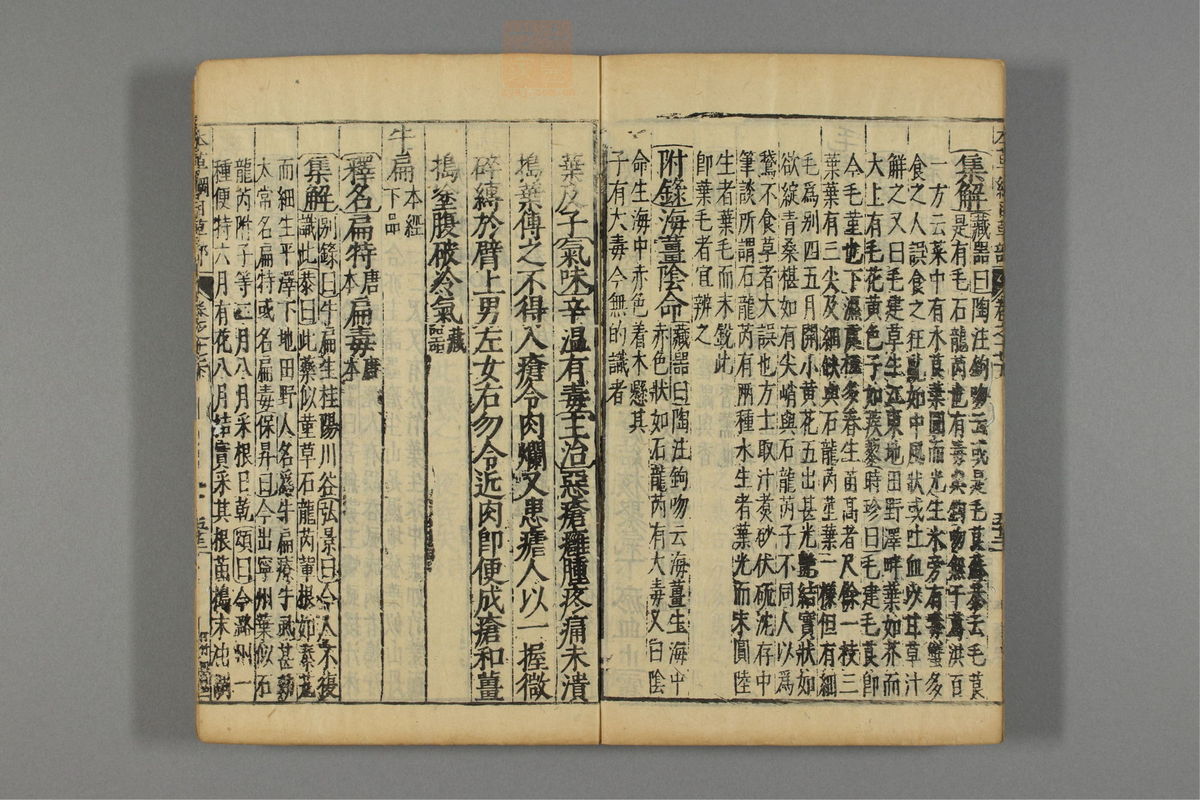 集解藏器曰陶注鉤吻云或是毛茛蘇恭云毛茛
是有毛石龍芮也有毒與鉤吻無干葛洪百
一方云菜中有水茛葉圓而光生水旁有毒蟹多
食之人誤食之狂亂如中風狀或吐血以甘草汁
解之又曰毛建草生江東地田野澤畔葉如芥而
大上有毛花黃色子如蒺藜時珍曰毛建毛茛卽
今毛菫也下濕處極多春生苗高者尺餘一枝三
葉葉有三尖及細缺與石龍芮莖葉一樣但有細
毛爲別四五月開小黃花五出甚光艷結實狀如
欲綻青桑椹如有尖峭與石龍芮子不同人以爲
鵞不食草者大誤也方士取汁煑砂伏硫沈存中
筆談所謂石龍芮有兩種水生者葉光而末圓陸
生者葉毛而末銳此
卽葉毛者宜辨之
附錄海薑陰命藏器曰陶注鉤吻云海薑生海中
赤色狀如石龍芮有大毒又曰陰
命生海中赤色着木懸其
子有大毒今無的識者
葉及子氣味辛溫有毒主治惡瘡癰腫疼痛未潰
搗葉傅之不得入瘡令肉爛又患瘧人以一握微
碎縛於臂上男左女右勿令近肉卽便成瘡和薑
搗塗腹破冷氣藏器
牛扁本經下品
釋名扁特唐本扁毒唐本
集解別錄曰牛扁生桂陽川谷弘景曰今人不復
識此恭曰此藥似菫草石龍芮輩根如秦艽
而細生平澤下地田野人名爲牛扁療牛蝨甚効
太常名扁特或名扁毒保昇曰今出寧州葉似石
龍芮附子等二月八月采根日乾頌曰今潞州一
種便特六月有花八月結實采其根苗搗末油調